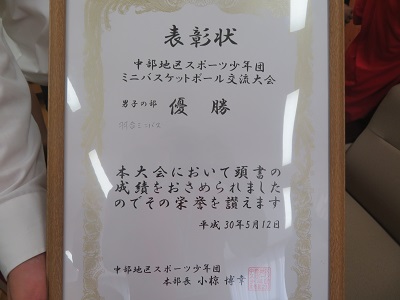 表彰状
中部地区スポーツ少年団
ミニバスケットボール交流大会
男子の部 優勝
本大会において頭書の
成績をおさめられました
のでその栄誉を讃えます
平成30年5月12日
中部地区スポーツ少年団
本部長 小椋 博幸